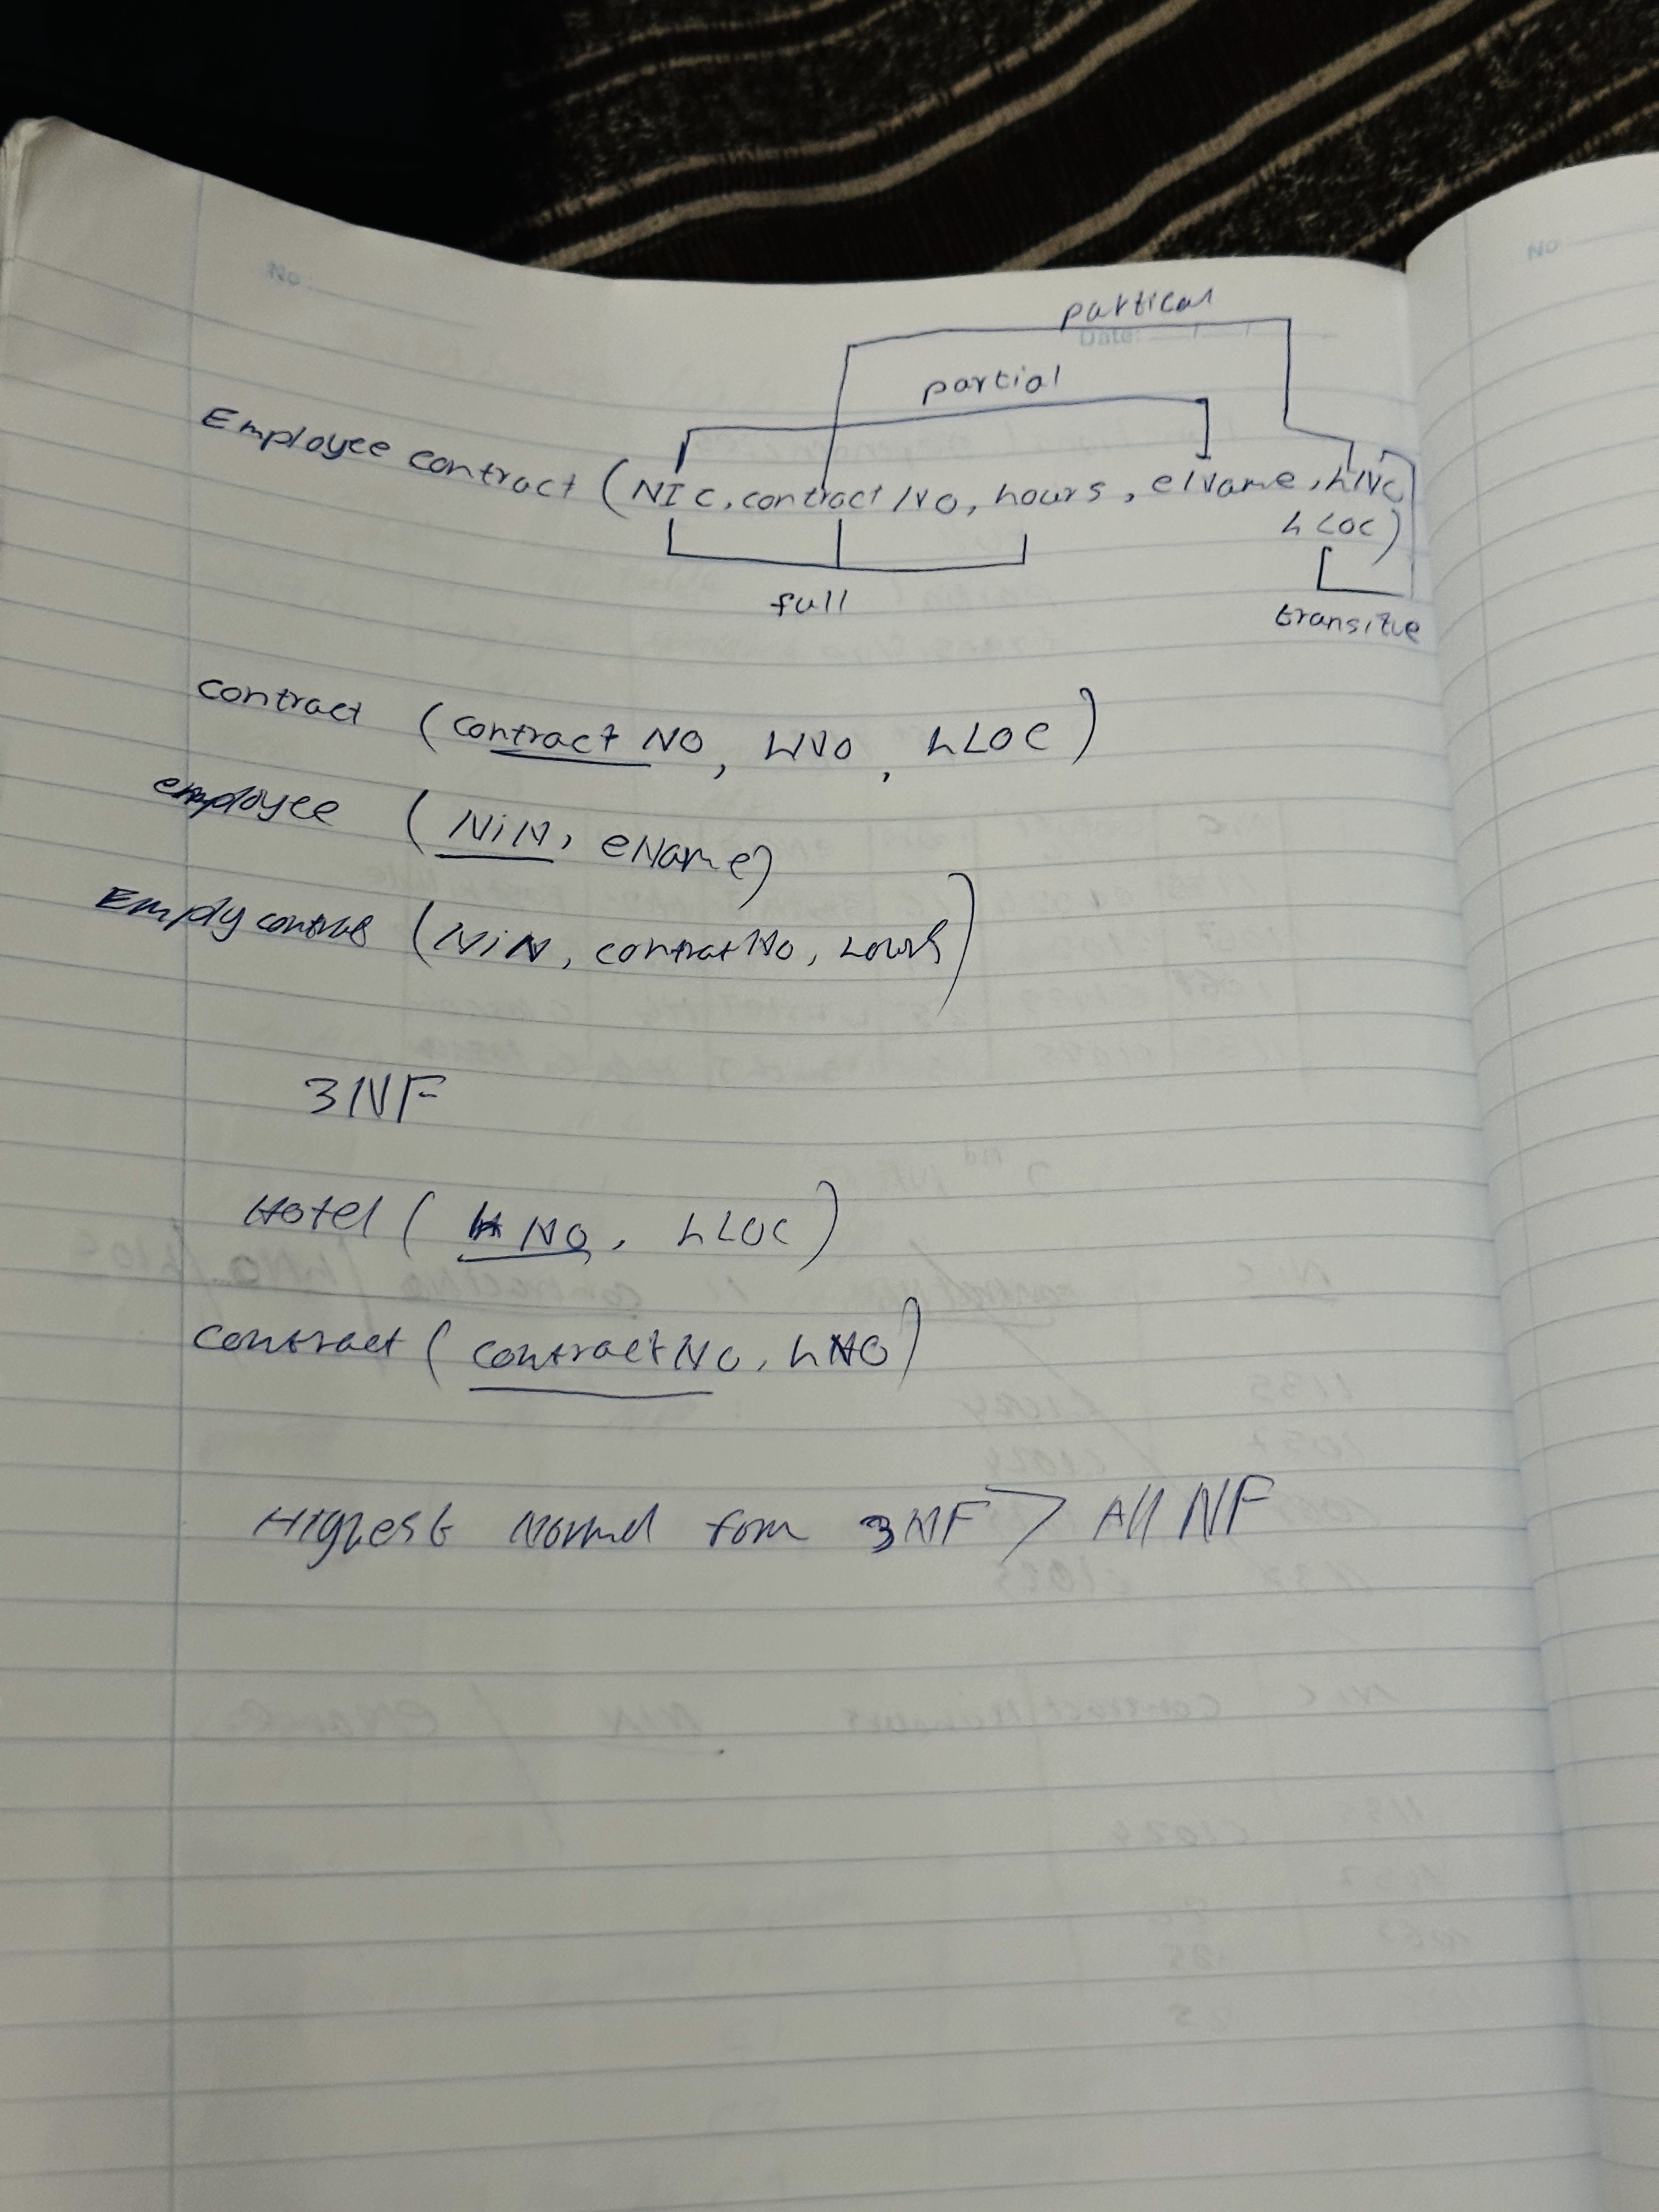 No:
No
partical
Date:
partial
Employee contract (NIC, contract NO, hours, eName, hNo
hLOC)
full
transitve
contract (contract NO, HNO, hLOC)
employee (NiN, eName)
(NiN, contractNo,
3NF
Hotel (HNO, hLOC)
contract (contractNO, hNO)
Highest Normal form 3NF > All NF